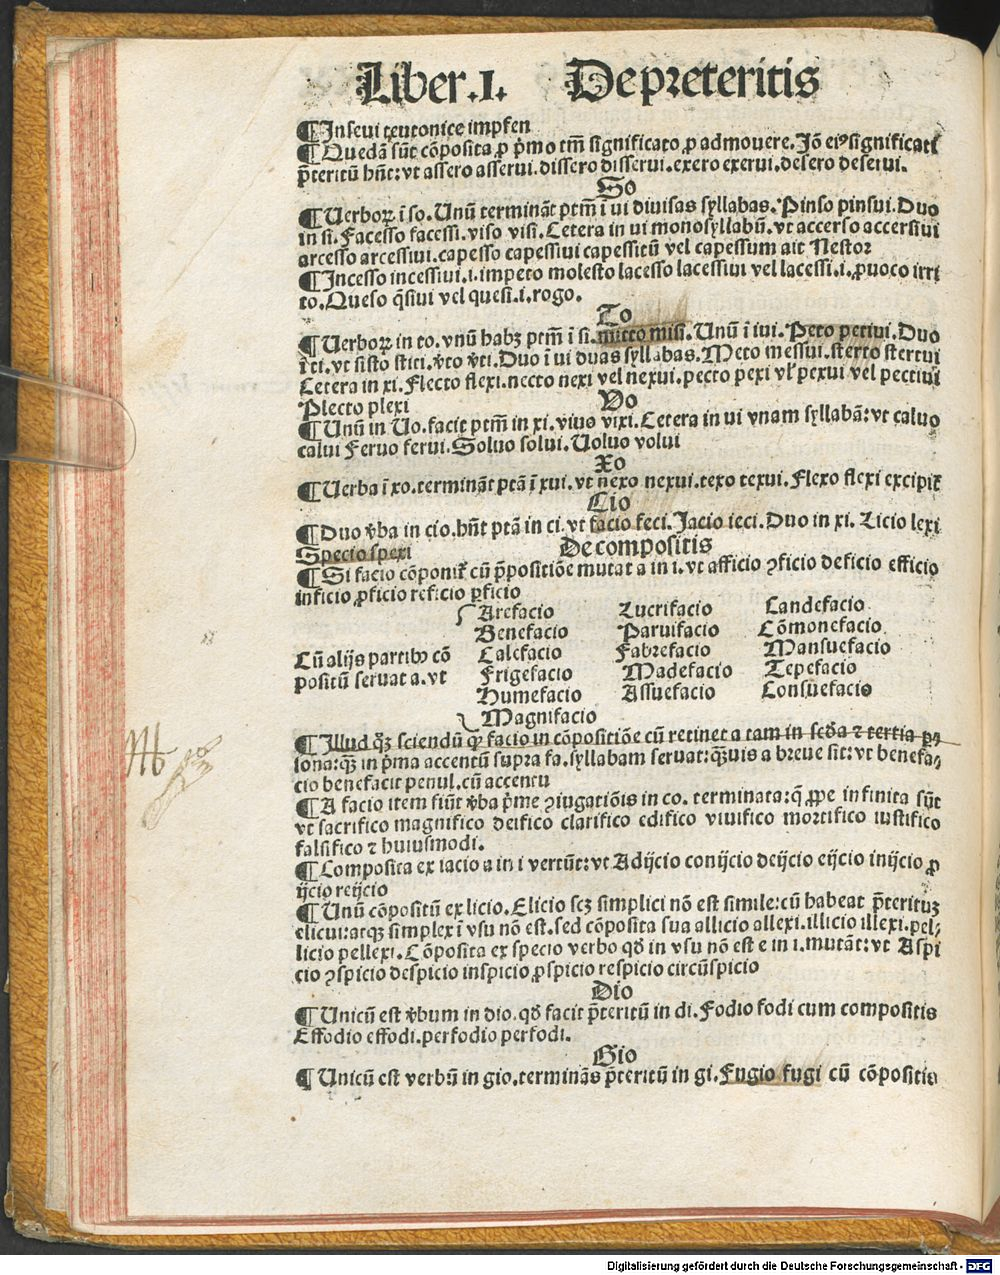 Liber.I. De preteritis
¶Inseui teutonice impfen
¶Quedā sūt cōposita ꝓ p̄mo tm̄ significato ꝓ admouere. Jō eiꝰ significati
p̄teritū hn̄t: vt assero asserui. dissero disserui. exero exerui. desero deserui.
So
¶Verboꝝ ī so. Unū terminat̄ ptm̄ ī ui diuisas syllabas. Pinso pinsui. Duo
in si. Facesso facessi. viso visi. Cetera in ui monosyllabū. vt accerso accersiui
arcesso arcessiui. capesso capessiui capessitū vel capessum ait Nestor
¶Incesso incessiui .i. impeto molesto lacesso lacessiui vel lacessi .i. ꝓuoco irri
to. Queso q̄siui vel quesi .i. rogo.
To
¶Verboꝝ in to. vnū habꝫ ptm̄ ī si. mitto misi. Unū ī iui. Peto petiui. Duo
ī ti. vt sisto stiti. v̄to v̄ti. Duo ī ui duas syllabas. Meto messui. sterto stertui
Cetera in xi. Flecto flexi. necto nexi vel nexui. pecto pexi vl̓ pexui vel pectiui
Plecto plexi
Vo
¶Unū in Uo. facit ptm̄ in xi. viuo vixi. Cetera in ui vnam syllabā: vt caluo
calui Feruo ferui. Soluo solui. Uoluo volui
Xo
¶Verba ī xo. terminā̄t ptā ī xui. vt nexo nexui. texo texui. Flexo flexi excipit̄
Cio
¶Duo v̄ba in cio. hn̄t ptā in ci. vt facio feci. Jacio ieci. Duo in xi. Licio lexi
Specio spexi De compositis
¶Si facio cōponit̄ cū p̄positiōe mutat a in i. vt afficio ꝯficio deficio efficio
inficio ꝓficio reficio ꝑficio
Arefacio Lucrifacio Candefacio
Benefacio Paruifacio Cōmonefacio
Cū alijs partibꝰ cō Calefacio Fabrefacio Mansuefacio
positū seruat a. vt Frigefacio Madefacio Tepefacio
Humefacio Assuefacio Consuefacio
Magnifacio
¶Illud qꝫ sciendū qꝙ facio in cōpositiōe cū retinet a tam in scd̄a ⁊ tertia ꝑ⸗
sona: qꝫ in p̄ma accentū supra fa. syllabam seruat: qꝫuis a breue sit: vt benefa⸗
cio benefacit penul. cū accentu
¶A facio item fiūt v̄ba p̄me ꝯiugatiōis in co. terminata: q̄ ꝓpe infinita sūt
vt sacrifico magnifico deifico clarifico edifico viuifico mortifico iustifico
falsifico ⁊ huiusmodi.
¶Composita ex iacio a in i vertūt: vt Adijcio conijcio deijcio eijcio inijcio ꝓ
ijcio reijcio
¶Unū cōpositū ex licio. Elicio scꝫ simplici nō est simile: cū habeat p̄teritūꝫ
elicui: atqꝫ simplex ī vsu nō est. sed cōposita sua allicio allexi. illicio illexi. pel⸗
licio pellexi. Cōposita ex specio verbo qđ in vsu nō est e in i. mutāt: vt Aspi
cio ꝯspicio despicio inspicio ꝓspicio respicio circūspicio
Dio
¶Unicū est v̄bum in dio. qđ facit p̄teritū in di. Fodio fodi cum compositis
Effodio effodi. perfodio perfodi.
Gio
¶Unicū est verbū in gio. terminās p̄teritū in gi. Fugio fugi cū cōpositis
Digitalisierung gefördert durch die Deutsche Forschungsgemeinschaft - DFG